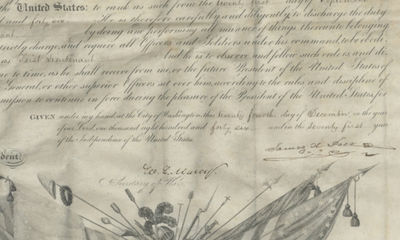 the United States: to rank as such from the
and forty six He is therefore carefully and diligently to discharge the duty
by doing and performing all manner of things thereunto belonging.
charge and require all Officers and Soldiers under his command, to be obedi-
as First Lieutenant And he is to observe and follow such orders, and di-
to time, as he shall receive from me, or the future President of the United States of
General, or other superior Officers set over him, according to the rules and discipline of
mission to continue in force during the pleasure of the President of the United States, for
GIVEN under my hand, at the City of Washington, this twenty fourth day of December in the year
of our Lord, one thousand eight hundred and forty six and in the seventy first year
of the Independence of the United States.
dent:
James K. Polk
W. L. Marcy
Secretary of War.